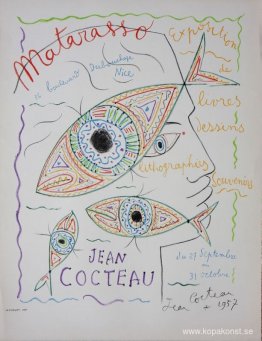 Matarasso
Exposition
de
livres
dessins
lithographies
souvenirs
Nice
JEAN
COCTEAU
du 27 Septembre
au
31 octobre
Jean Cocteau
1957
www.kopakonst.se